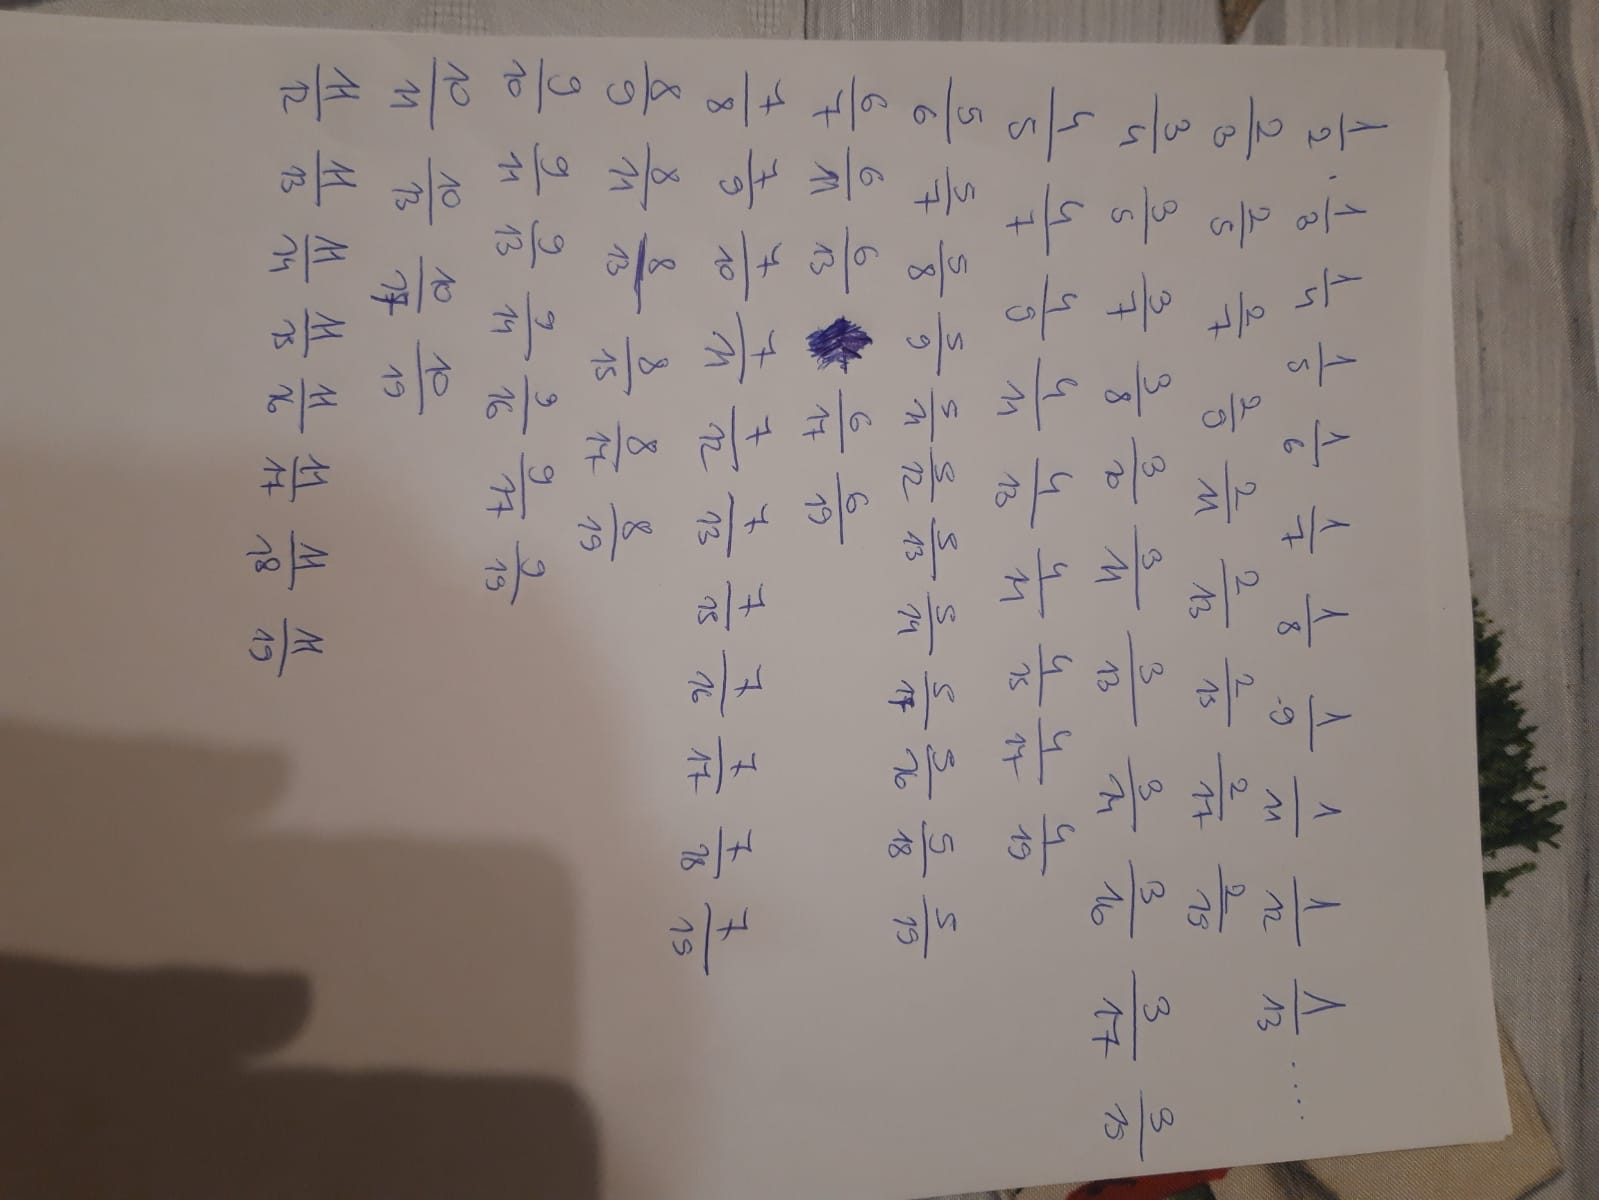 1/2 · 1/3 1/4 1/5 1/6 1/7 1/8 1/9 1/11 1/12 1/13 ....
2/3 2/5 2/7 2/9 2/11 2/13 2/15 2/17 2/19
3/4 3/5 3/7 3/8 3/10 3/11 3/13 3/14 3/16 3/17 3/19
4/5 4/7 4/9 4/11 4/13 4/14 4/15 4/17 4/19
5/6 5/7 5/8 5/9 5/11 5/12 5/13 5/14 5/17 5/16 5/18 5/19
6/7 6/11 6/13 6/17 6/19
7/8 7/9 7/10 7/11 7/12 7/13 7/15 7/16 7/17 7/18 7/19
8/9 8/11 8/13 8/15 8/17 8/19
9/10 9/11 9/13 9/14 9/16 9/17 9/19
10/11 10/13 10/17 10/19
11/12 11/13 11/14 11/15 11/16 11/17 11/18 11/19